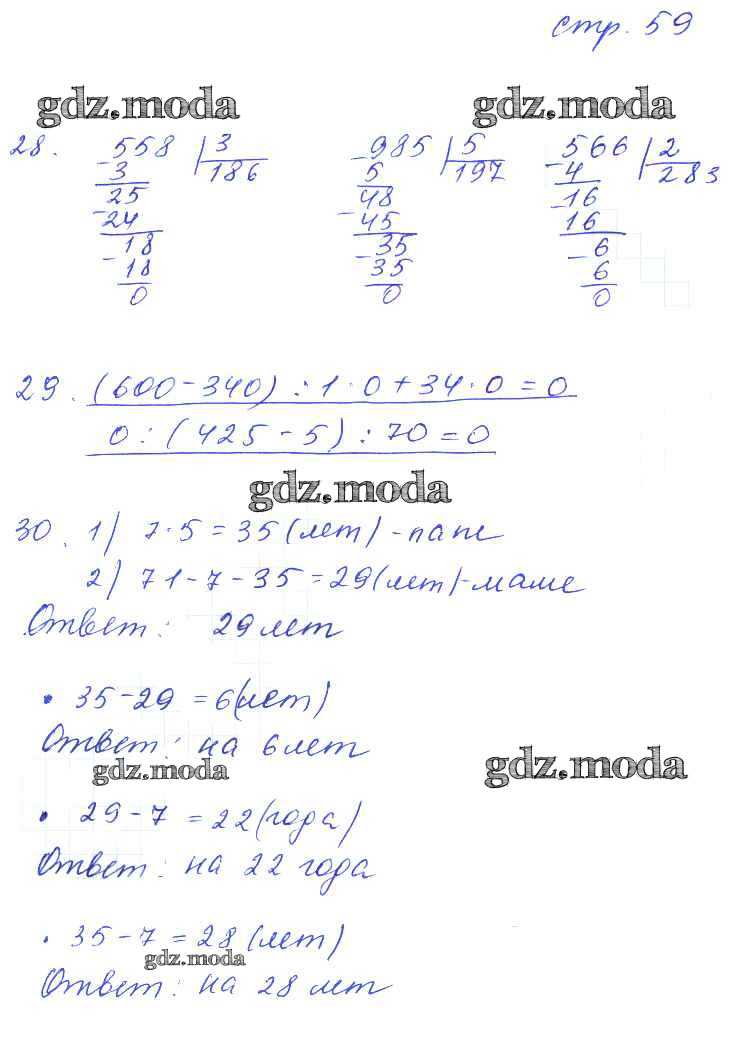 стр. 59
gdz.moda gdz.moda
28. 558 3 985 5 566 2
- 3 186 - 5 197 - 4 283
25 48 16
- 24 - 45 - 16
18 35 6
- 18 - 35 - 6
0 0 0
29. (600 - 340) : 1 · 0 + 34 · 0 = 0
0 : (425 - 5) : 70 = 0
gdz.moda
30. 1) 7 · 5 = 35 (лет) - папе
2) 71 - 7 - 35 = 29 (лет) - маме
Ответ: 29 лет
· 35 - 29 = 6 (лет)
Ответ: на 6 лет
gdz.moda gdz.moda
· 29 - 7 = 22 (года)
Ответ: на 22 года
· 35 - 7 = 28 (лет)
gdz.moda
Ответ: на 28 лет